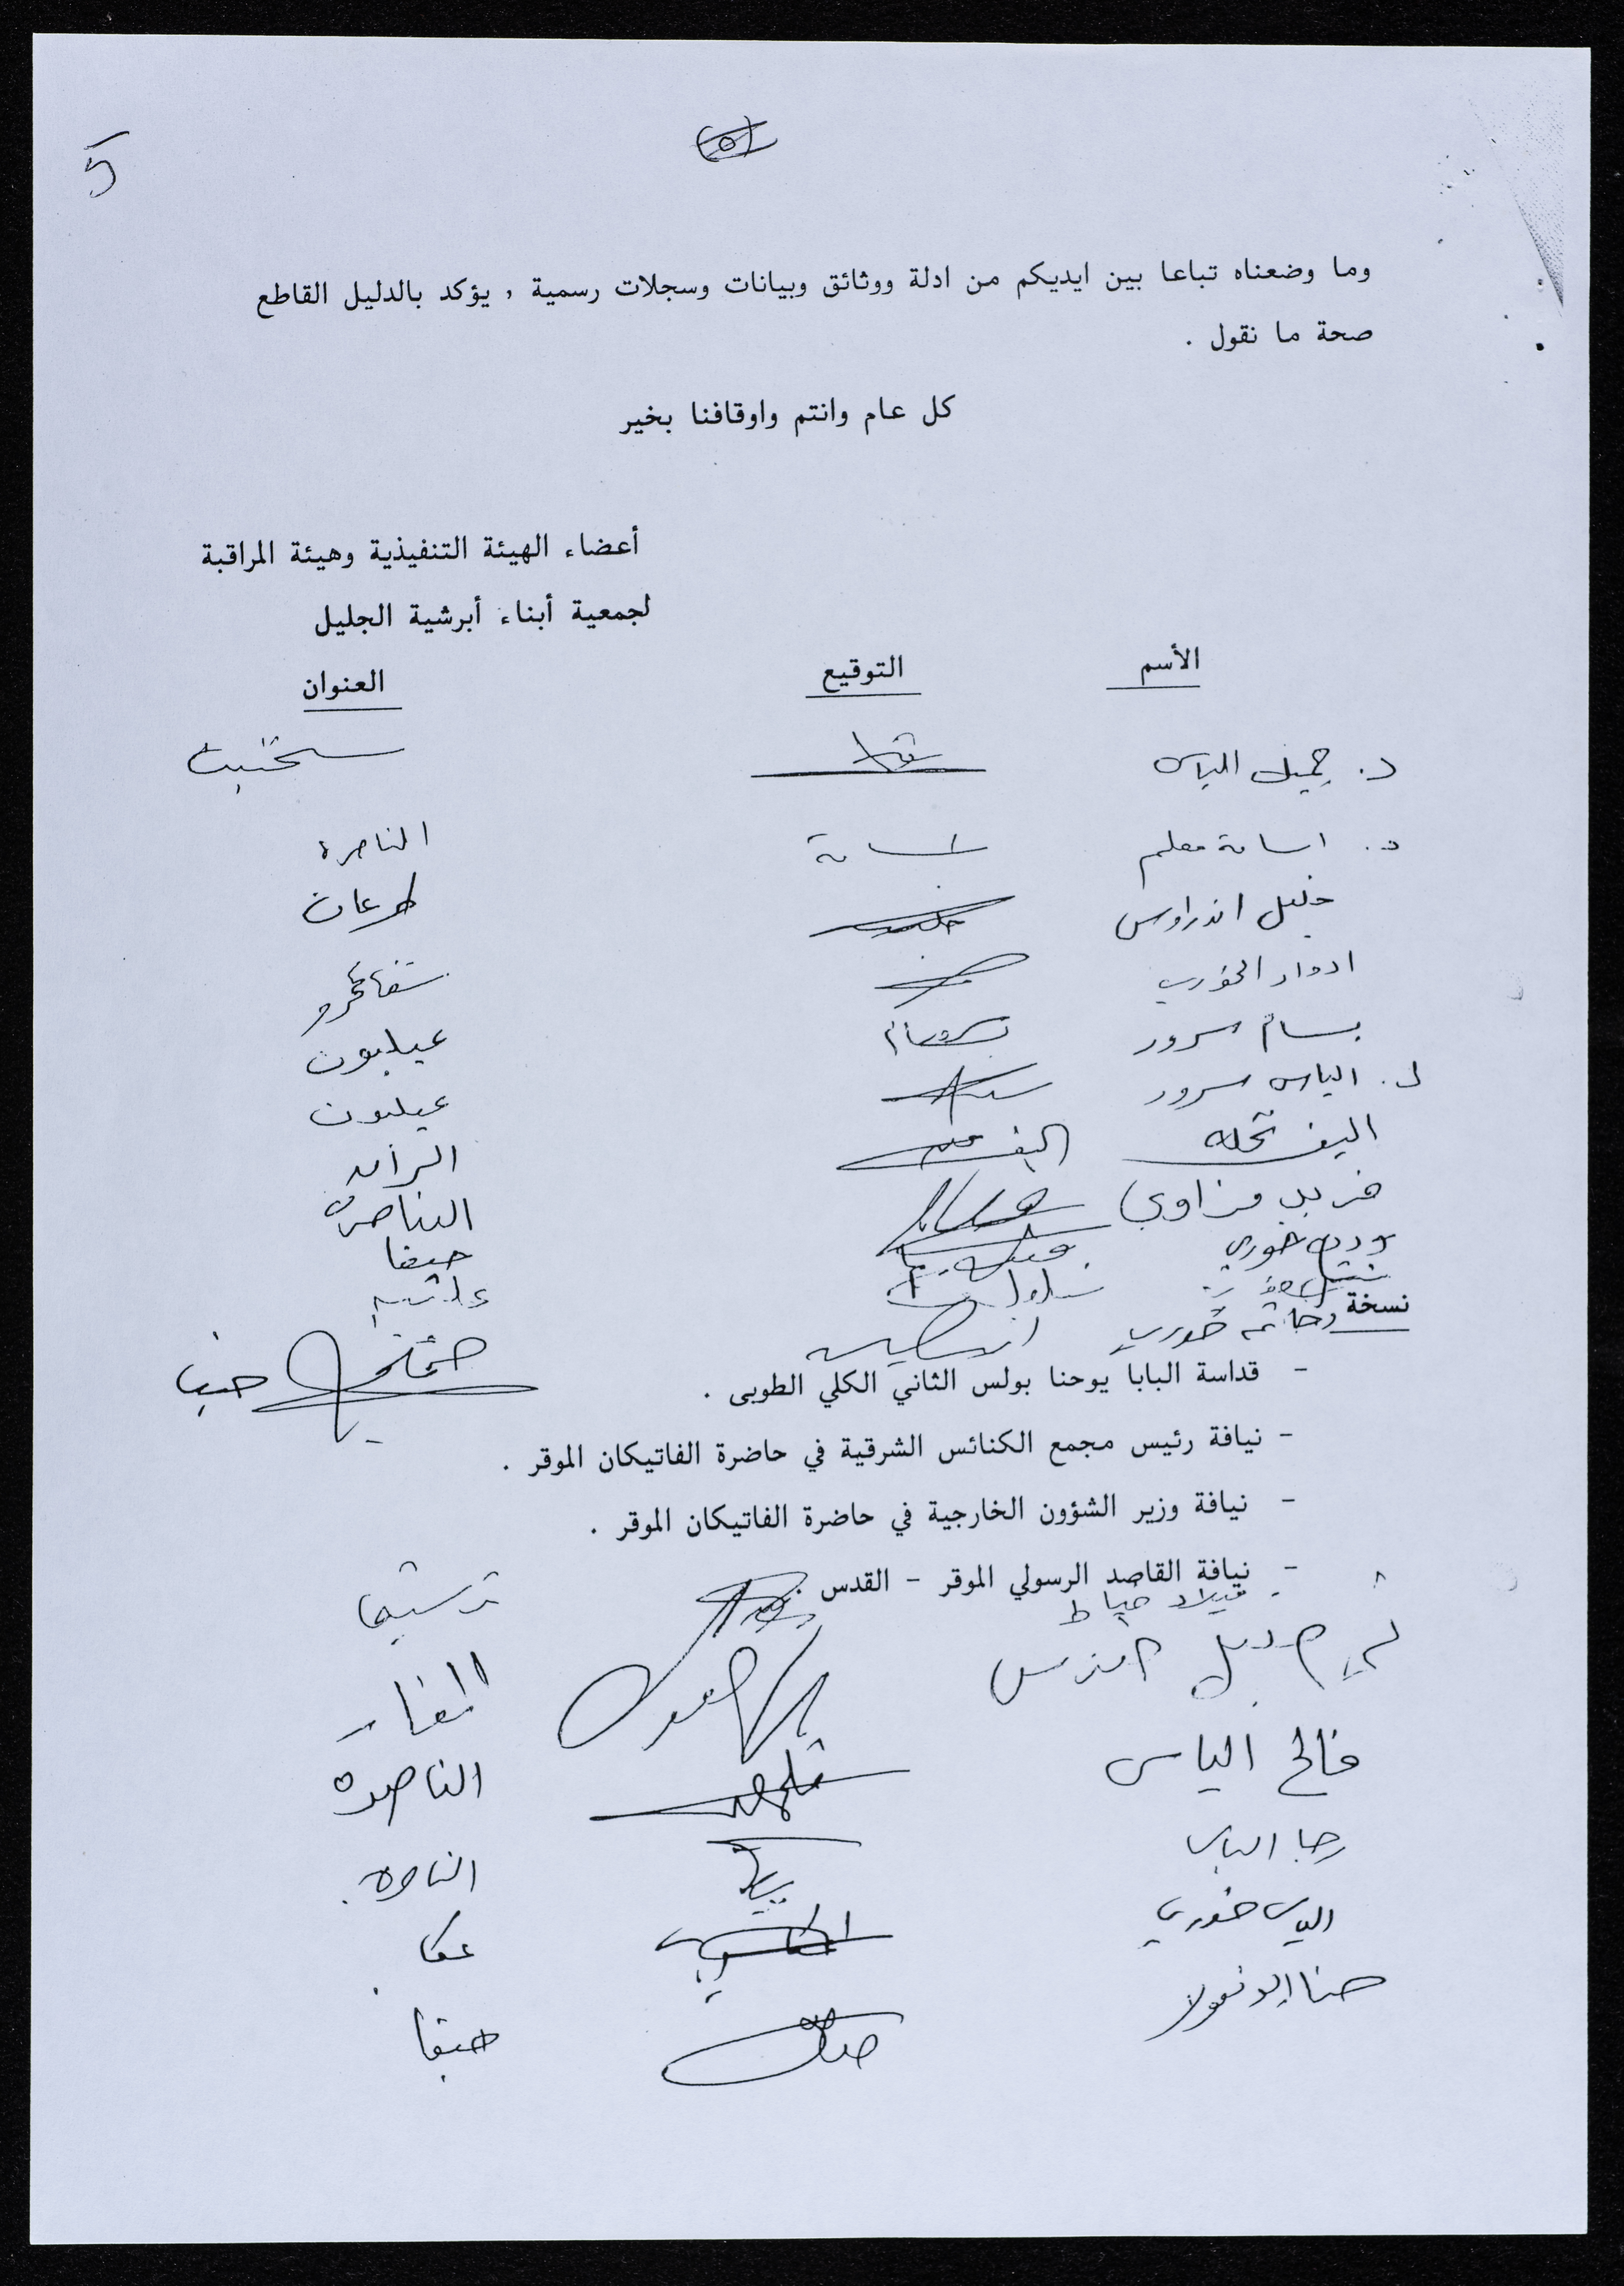 5
(٥)
وما وضعناه تباعا بين ايديكم من ادلة ووثائق وبيانات وسجلات رسمية , يؤكد بالدليل القاطع
صحة ما نقول .
كل عام وانتم واوقافنا بخير
أعضاء الهيئة التنفيذية وهيئة المراقبة
لجمعية أبناء أبرشية الجليل
الأسم التوقيع العنوان
د. جميل الياس سخنين
د. اسامة معلم اسامة الناصرة
خليل اندراوس طرعان
ادوار الخوري شفاعمرو
بسام سرور عيلبون
د. الياس سرور عيلبون
اليف نخله اليف الرامه
فريد مزاوي الناصرة
خوري حيفا
نسخة
خوري حيفا
- قداسة البابا يوحنا بولس الثاني الكلي الطوبى .
- نيافة رئيس مجمع الكنائس الشرقية في حاضرة الفاتيكان الموقر .
- نيافة وزير الشؤون الخارجية في حاضرة الفاتيكان الموقر .
- نيافة القاصد الرسولي الموقر - القدس .
ميلاد خياط ترشيحا
المغار
فالح الياس الناصرة
رجا الياس الناصرة
الياس خوري عكا
حنا ابو نقولا حيفا